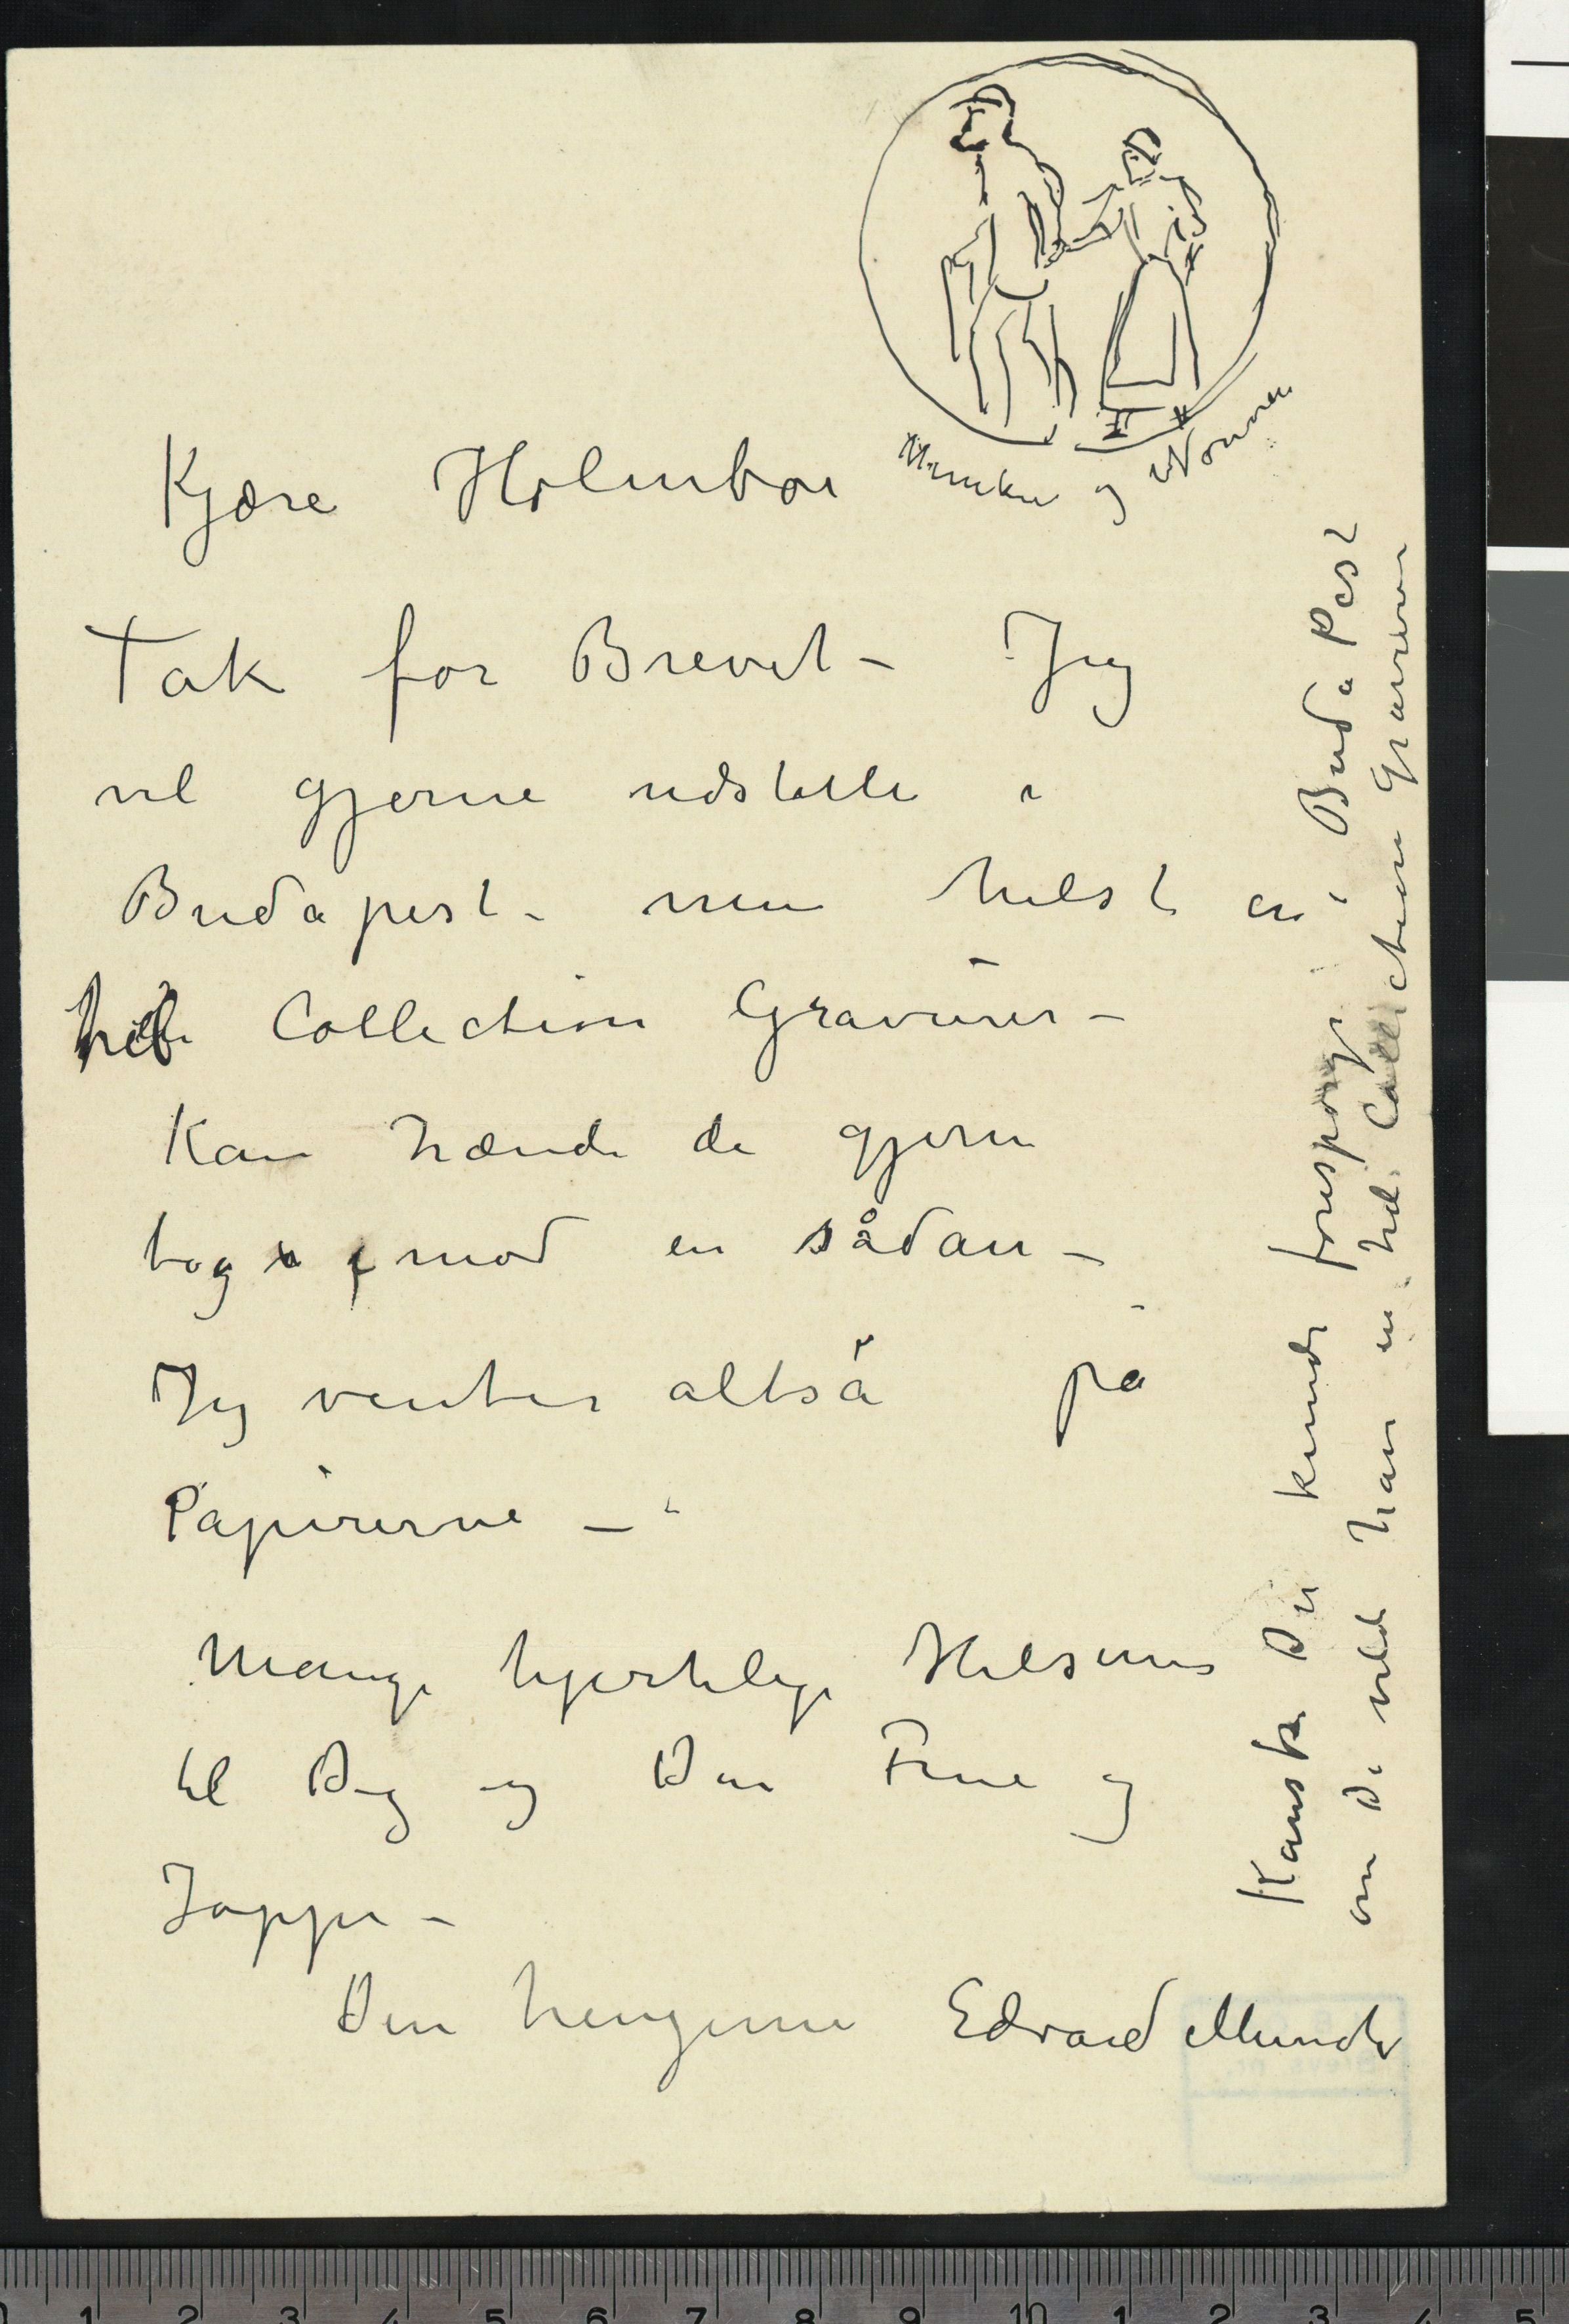 Munken og Nonnen
Kjære Holmboe
Tak for Brevet – Jeg
vil gjerne udstille i
Budapest – men helst en
hel Collection Gravurer –
Kan hænde de gjerne
tog mod en sådan –
Jeg venter altså på
Papirerne –
Mange hjertelige Hilsener
til Dig og Din Frue og
Jappe –
Din hengivne Edvard Munch
Kanske Du kunde forespørge i Buda Pest
om De vilde have en hel Collection Gravurer